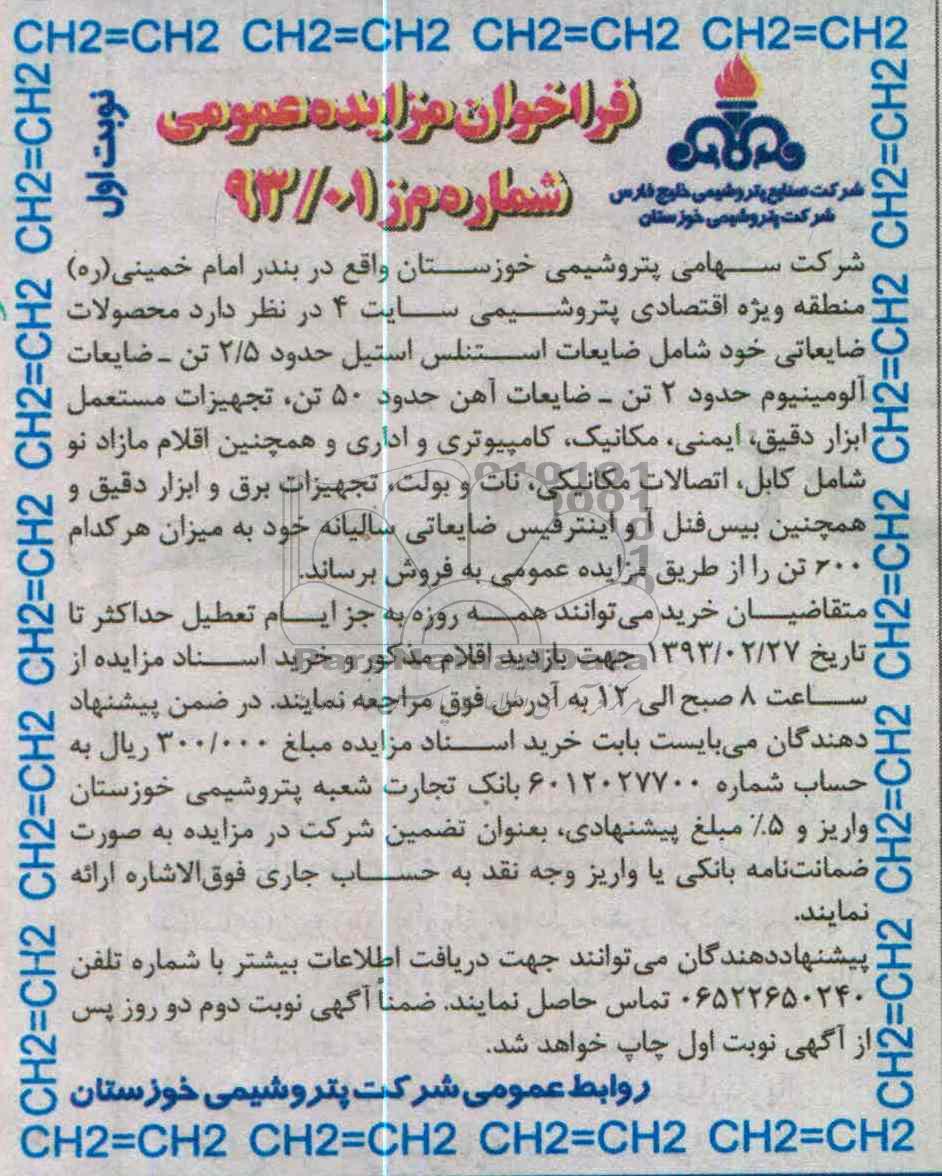 CH2=CH2 CH2=CH2 CH2=CH2 CH2=CH2
CH2=CH2 CH2=CH2 CH2=CH2 CH2=CH2 CH2=CH2
نوبت اول
فراخوان مزایده عمومی
شماره م‌م‌ز ۹۳/۰۱
شرکت صنایع پتروشیمی خلیج فارس
شرکت پتروشیمی خوزستان
شرکت سهامی پتروشیمی خوزستان واقع در بندر امام خمینی(ره)
منطقه ویژه اقتصادی پتروشیمی سایت ۴ در نظر دارد محصولات
ضایعاتی خود شامل ضایعات استنلس استیل حدود ۲/۵ تن ـ ضایعات
آلومینیوم حدود ۲ تن ـ ضایعات آهن حدود ۵۰ تن، تجهیزات مستعمل
ابزار دقیق، ایمنی، مکانیک، کامپیوتری و اداری و همچنین اقلام مازاد نو
شامل کابل، اتصالات مکانیکی، نات و بولت، تجهیزات برق و ابزار دقیق و
همچنین بیس‌فنل آ و اینترفیس ضایعاتی سالیانه خود به میزان هر کدام
۲۰۰ تن را از طریق مزایده عمومی به فروش برساند.
متقاضیان خرید می‌توانند همه روزه به جز ایام تعطیل حداکثر تا
تاریخ ۱۳۹۳/۰۲/۲۷ جهت بازدید اقلام مذکور و خرید اسناد مزایده از
ساعت ۸ صبح الی ۱۲ به آدرس فوق مراجعه نمایند. در ضمن پیشنهاد
دهندگان می‌بایست بابت خرید اسناد مزایده مبلغ ۳۰۰/۰۰۰ ریال به
حساب شماره ۶۰۱۲۰۲۷۷۰۰ بانک تجارت شعبه پتروشیمی خوزستان
واریز و ۵٪ مبلغ پیشنهادی، بعنوان تضمین شرکت در مزایده به صورت
ضمانت‌نامه بانکی یا واریز وجه نقد به حساب جاری فوق‌الاشاره ارائه
نمایند.
پیشنهاددهندگان می‌توانند جهت دریافت اطلاعات بیشتر با شماره تلفن
۰۶۵۲۲۶۵۰۲۴۰ تماس حاصل نمایند. ضمناً آگهی نوبت دوم دو روز پس
از آگهی نوبت اول چاپ خواهد شد.
روابط عمومی شرکت پتروشیمی خوزستان
CH2=CH2 CH2=CH2 CH2=CH2 CH2=CH2 CH2=CH2
CH2=CH2 CH2=CH2 CH2=CH2 CH2=CH2